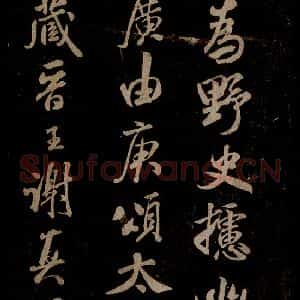 為野史攄
廣由庚頌太
藏晉王謝真
Shufawang.CN